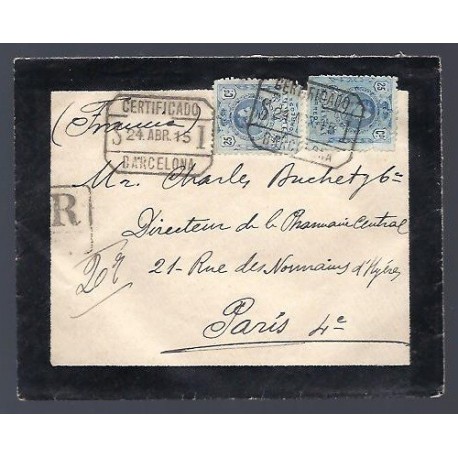 (Francia)
CERTIFICADO
S 24 ABR.15 1
BARCELONA
CERTIFICADO
BARCELONA
25 Cs
25 Cs
R
Mr. Charles Buchet y Cº
Directeur de la Pharmacie Central
21 - Rue des Nonnains d'Hyères
París 4e